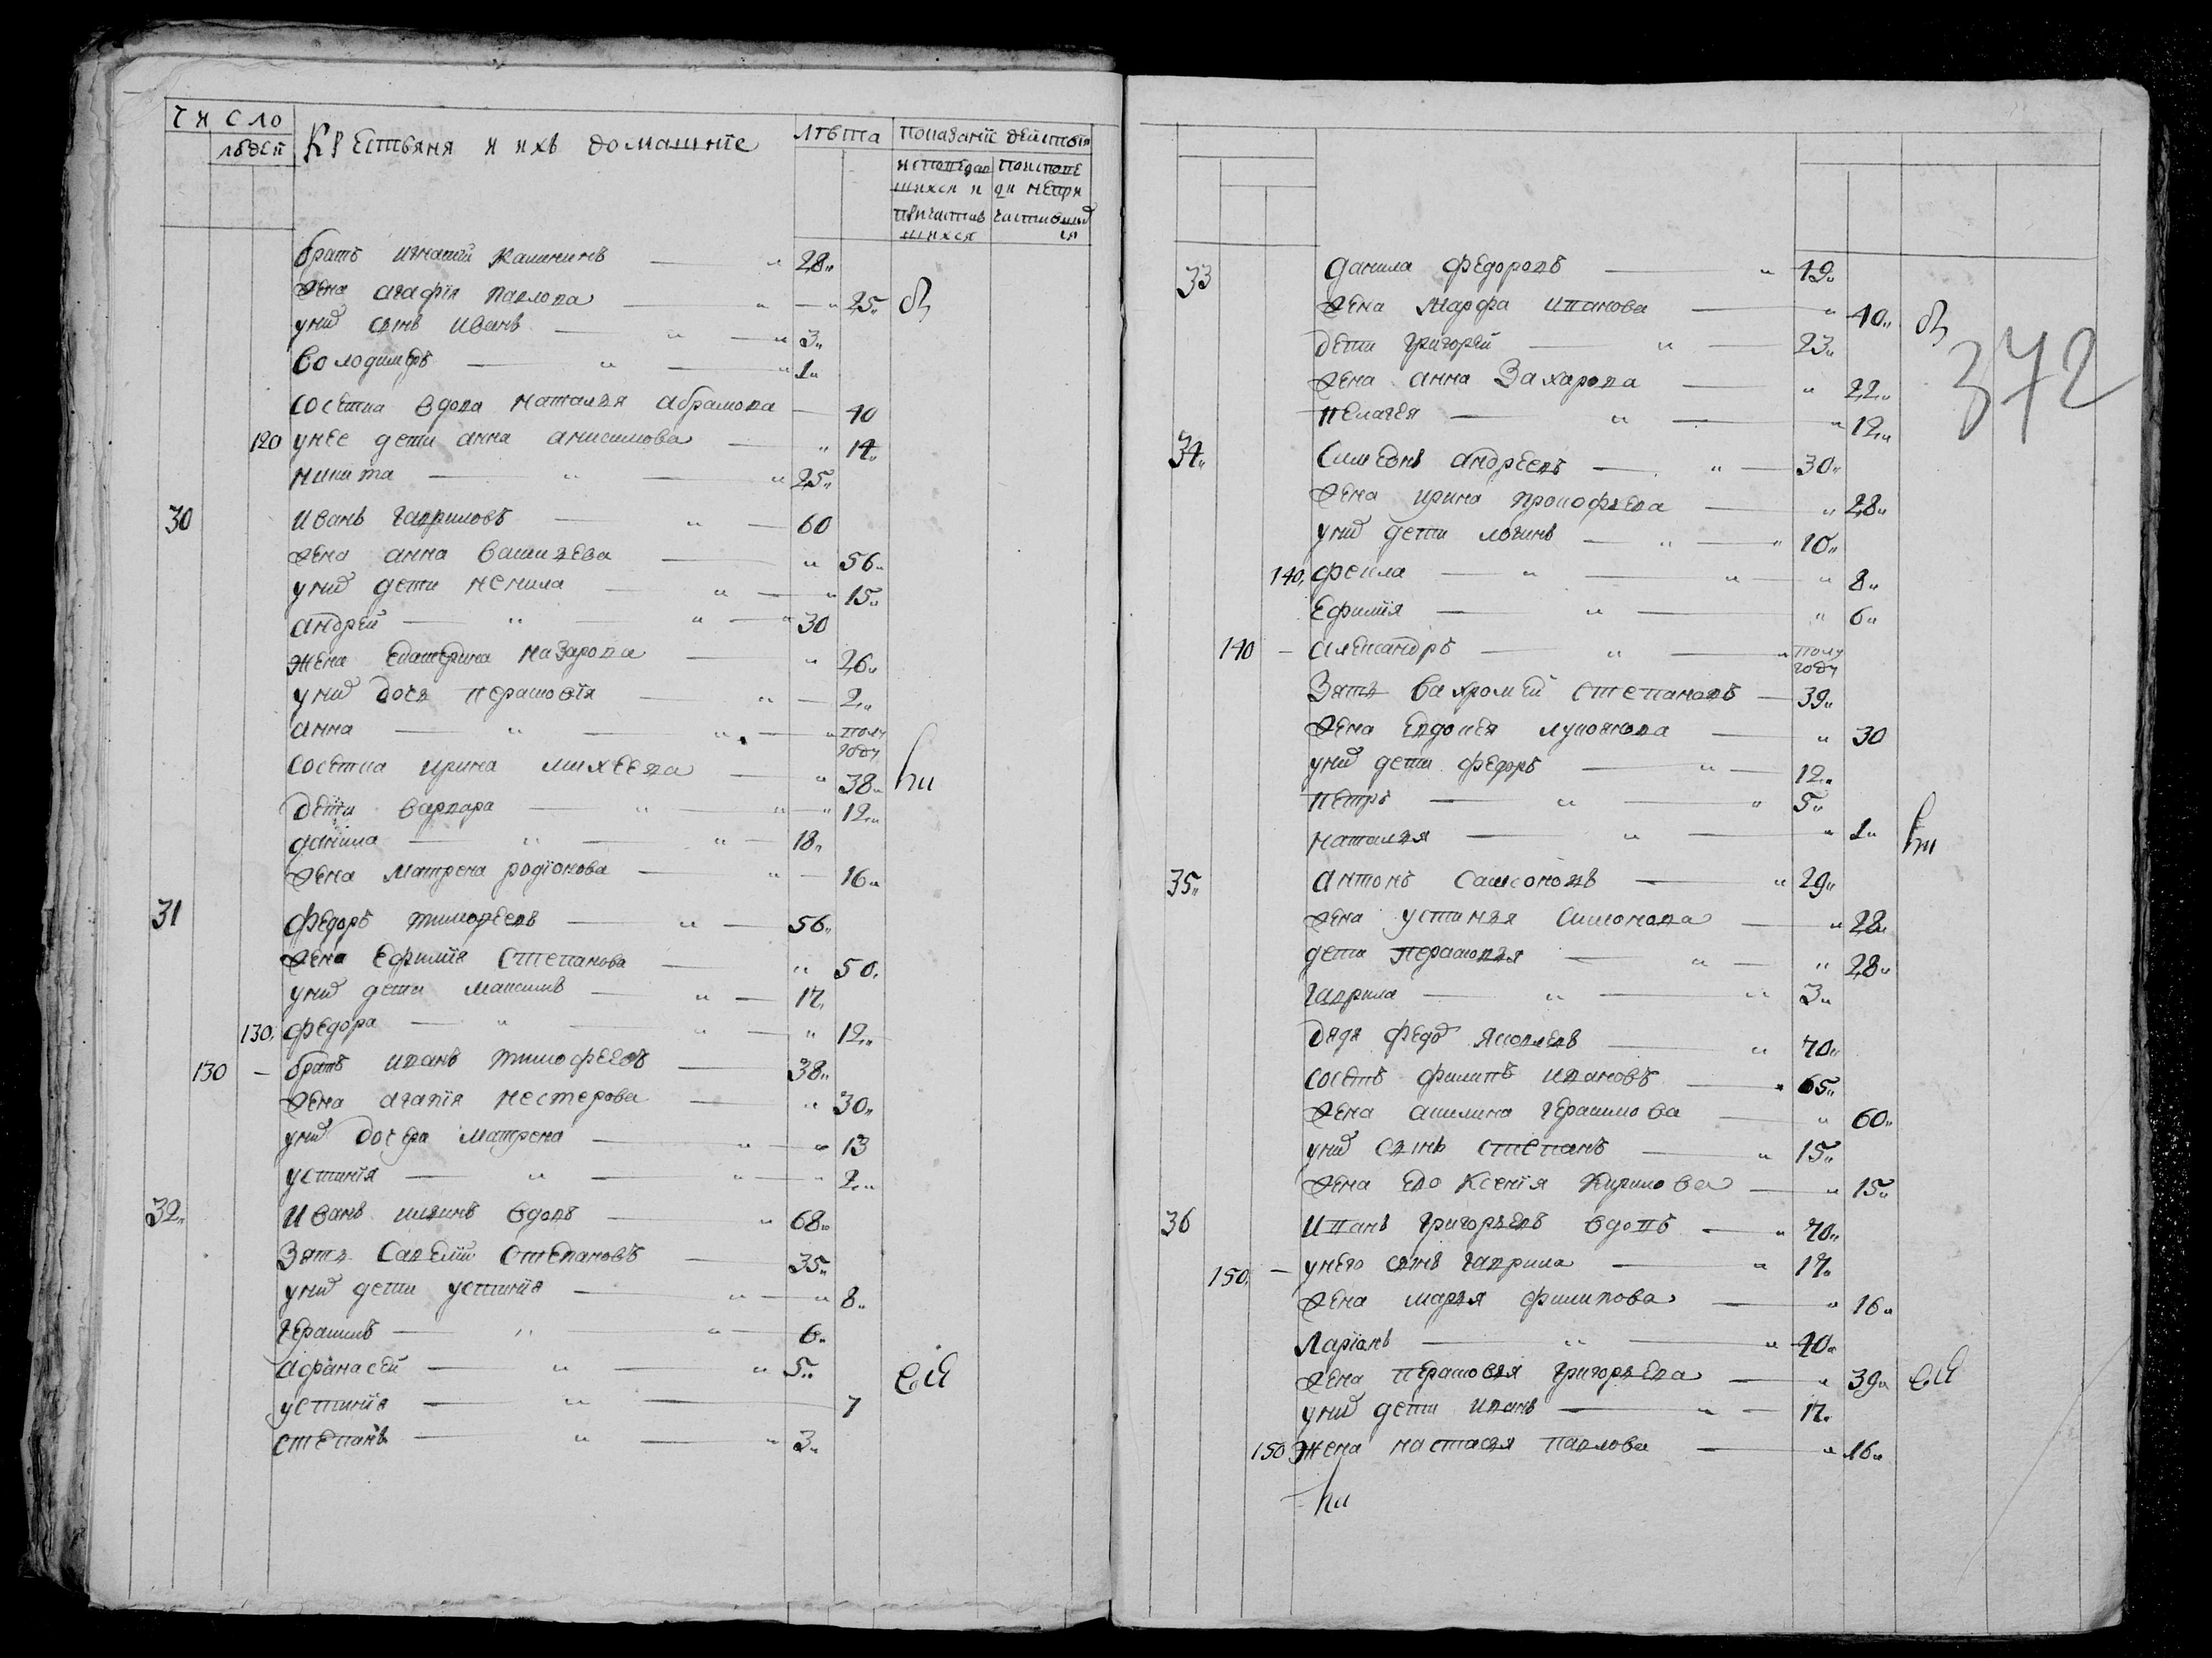 Число
людей
Крестьяня и ихъ домашнїе
лѣта
показанїе действъ
исповедав
шихся и
причастив
шихся
поиспове
ди непри
частивш
ся
братъ игнатїй калининъ 28
жена агафїя павлова 25
уних сынъ иванъ 3
володимеръ 1
соседка вдова наталья абрамова 40
120 унее дети анна анисимова 14
никита 25
30 иванъ гавриловъ 60
жена анна василева 56
уних дети ненила 15
андрей 30
жена екатерина назарова 26
уних дочь парасковїя 2
анна полугоду
соседка ирина михеева 38
дети варвара 12
данила 18
жена матрена родїонова 16
31 федоръ тимофеевъ 56
жена ефимїя степанова 50
уних дети максимъ 17
130 федора 12
130 – братъ иванъ тимофеевъ 38
жена агапїя нестерова 30
уних дочера матрена 13
устинїя 2
32 иванъ вдовъ 68
зять савелїй степановъ 35
уних дети устинїя 8
герасимъ 6
афанасей 5
устинїя 7
степанъ 3
372
33 данила федоровъ 49
жена марфа иванова 40
дети григорей 23
жена анна захарова 22
пелагея 12
34 симеонъ андреевъ 30
жена ирина прокофьева 28
уних дети логинъ 10
140 фекла 8
ефимїя 6
140 – александръ полугоду
зять вахромей степановъ 39
жена евдокея лукоянова 30
уних дети федоръ 12
петръ 5
наталья 1
35 антонъ самсоновъ 29
жена устинья симонова 28
дети парасковья 28
гаврила 3
дядя федо яковлевъ 70
соседъ филипъ ивановъ 65
жена акилина герасимова 60
уних сынъ степанъ 15
жена ево ксенїя кирилова 15
36 иванъ григорьевъ вдовъ 70
150 – унего сынъ гаврила 17
жена марья филипова 16
ларїонъ 40
жена парасковья григорьева 39
уних дети иванъ 17
150 жена настасья павлова 16